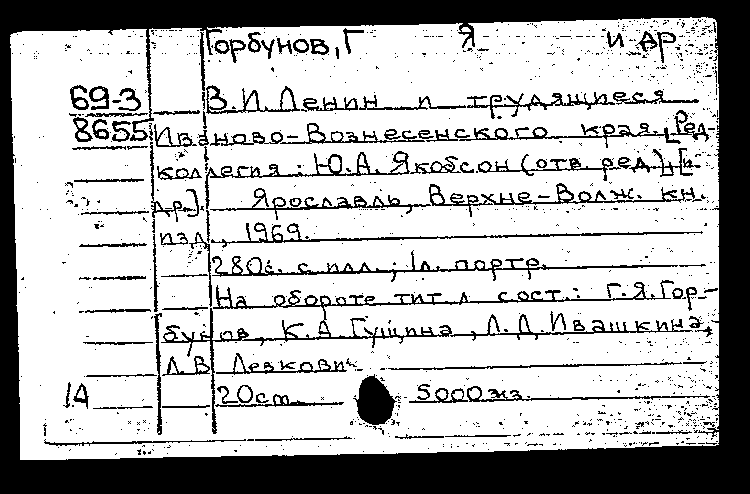 Горбунов, Г Я и др
69-3 В.И. Ленин и трудящиеся
8655 Иваново-Вознесенского края. [Ред-
коллегия: Ю.А. Якобсон (отв. ред.), [и
др.]. Ярославль, Верхне-Волж. кн.
изд., 1969.
280с. с илл.; 1л. портр.
На обороте тит л сост.: Г.Я. Гор-
бунов, К.А. Гущина, Л.Д. Ивашкина,
Л.В Левкович
1А 20см. 5000 экз.